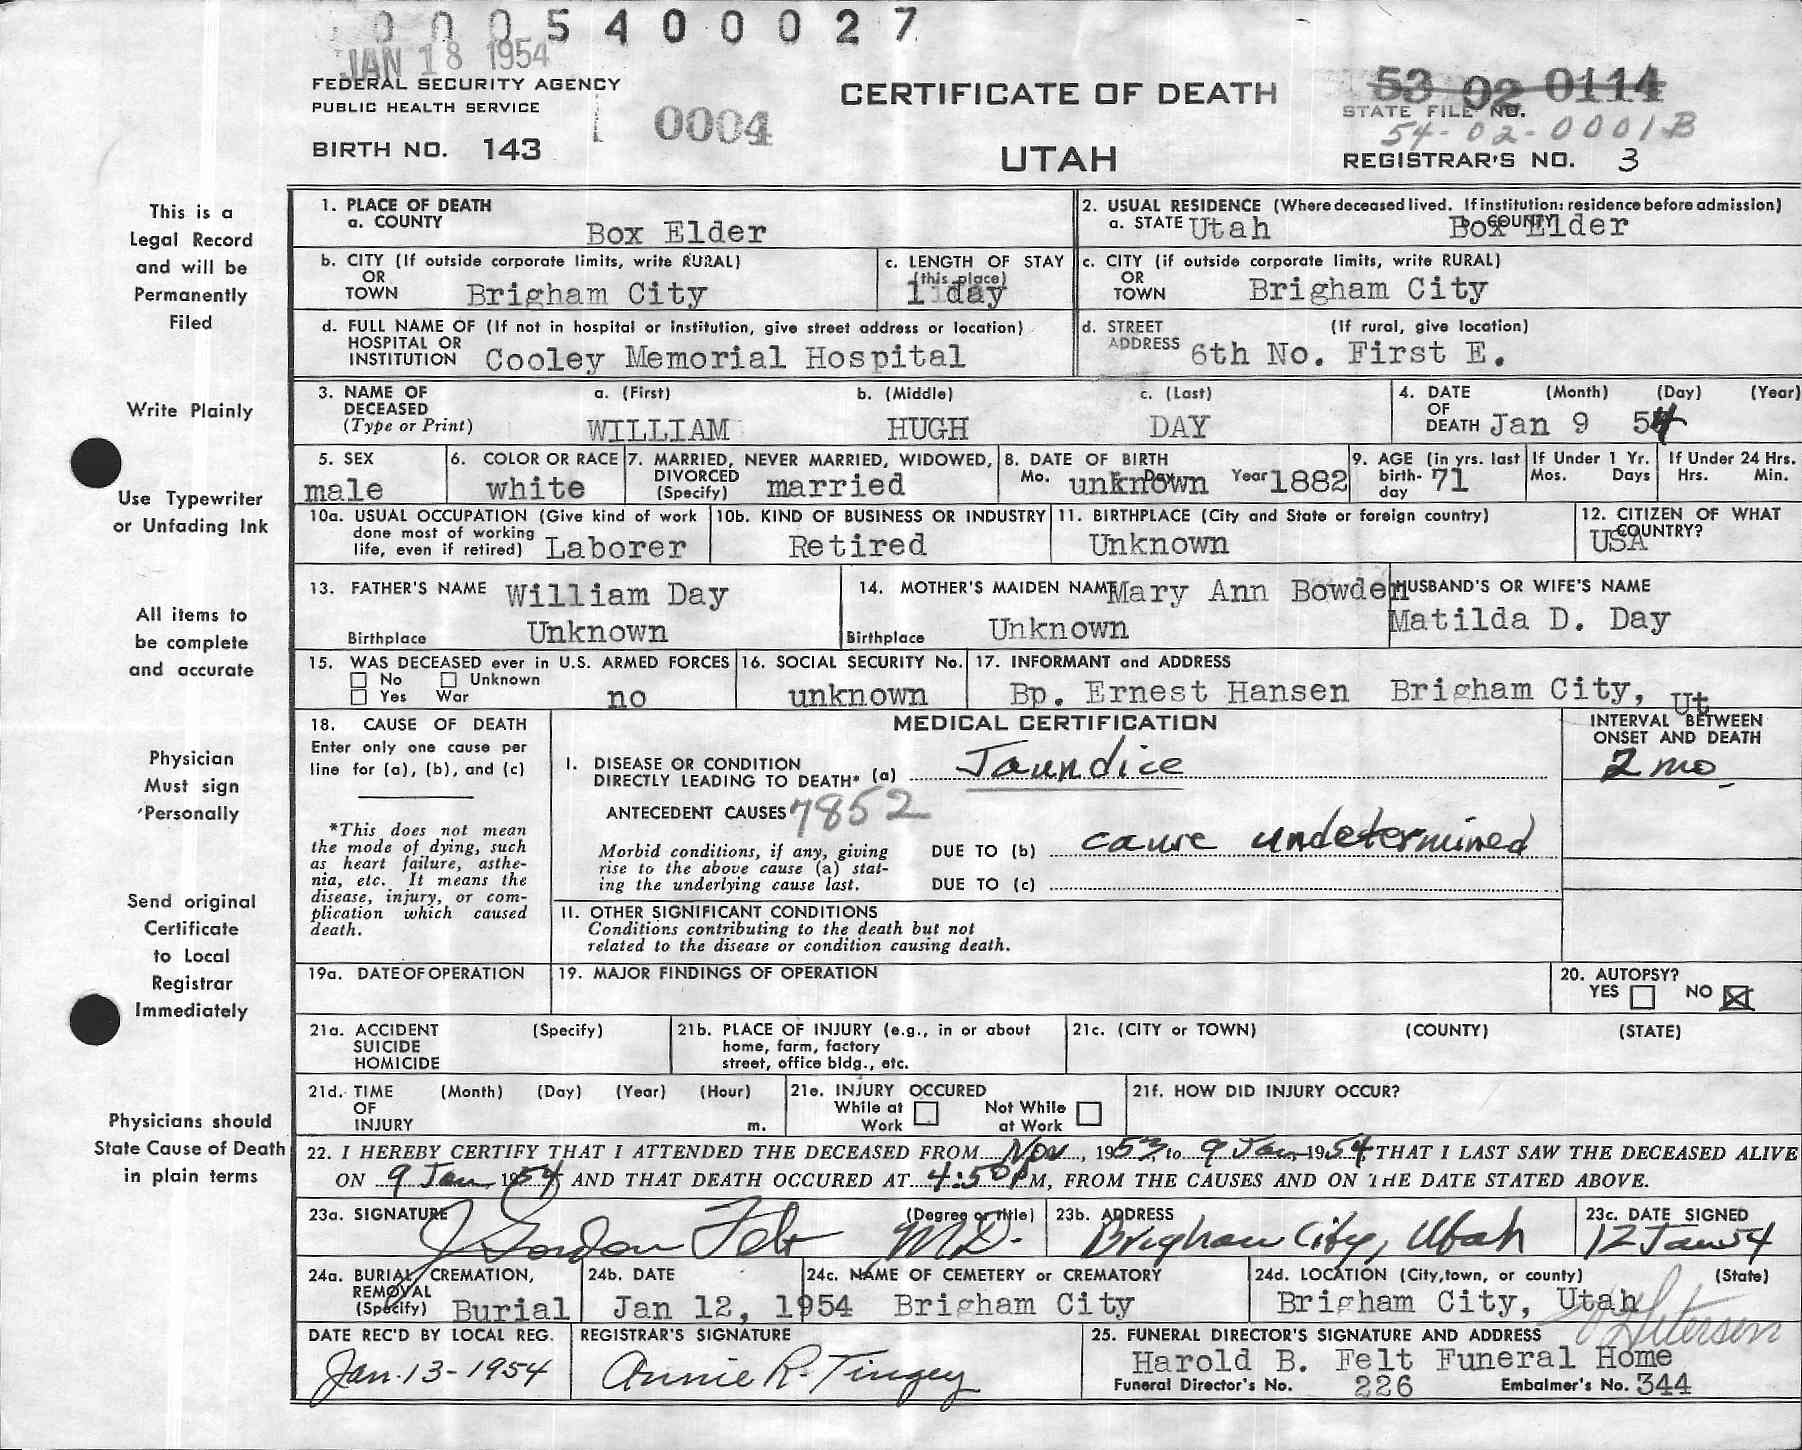 0 0 0 5 4 0 0 0 2 7
JAN 18 1954
FEDERAL SECURITY AGENCY
PUBLIC HEALTH SERVICE
BIRTH NO. 143
0004
CERTIFICATE OF DEATH
UTAH
53 02 0114
STATE FILE NO.
54-02-0001B
REGISTRAR'S NO. 3
This is a
Legal Record
and will be
Permanently
Filed
Write Plainly
Use Typewriter
or Unfading Ink
All items to
be complete
and accurate
Physician
Must sign
'Personally
Send original
Certificate
to Local
Registrar
Immediately
Physicians should
State Cause of Death
in plain terms
1. PLACE OF DEATH
a. COUNTY Box Elder
2. USUAL RESIDENCE (Where deceased lived. If institution: residence before admission)
a. STATE Utah COUNTY Box Elder
b. CITY (If outside corporate limits, write RURAL)
OR
TOWN Brigham City
c. LENGTH OF STAY
(this place)
1 day
c. CITY (if outside corporate limits, write RURAL)
OR
TOWN Brigham City
d. FULL NAME OF (If not in hospital or institution, give street address or location)
HOSPITAL OR
INSTITUTION Cooley Memorial Hospital
d. STREET (If rural, give location)
ADDRESS 6th No. First E.
3. NAME OF a. (First) b. (Middle) c. (Last)
DECEASED
(Type or Print) WILLIAM HUGH DAY
4. DATE (Month) (Day) (Year)
OF
DEATH Jan 9 54
5. SEX
male
6. COLOR OR RACE
white
7. MARRIED, NEVER MARRIED, WIDOWED,
DIVORCED
(Specify) married
8. DATE OF BIRTH
Mo. unknown Day Year 1882
9. AGE (in yrs. last
birth-
day 71
If Under 1 Yr.
Mos. Days
If Under 24 Hrs.
Hrs. Min.
10a. USUAL OCCUPATION (Give kind of work
done most of working
life, even if retired) Laborer
10b. KIND OF BUSINESS OR INDUSTRY
Retired
11. BIRTHPLACE (City and State or foreign country)
Unknown
12. CITIZEN OF WHAT
COUNTRY?
USA
13. FATHER'S NAME William Day
Birthplace Unknown
14. MOTHER'S MAIDEN NAME Mary Ann Bowden
Birthplace Unknown
HUSBAND'S OR WIFE'S NAME
Matilda D. Day
15. WAS DECEASED ever in U.S. ARMED FORCES
No Unknown
Yes War no
16. SOCIAL SECURITY No.
unknown
17. INFORMANT and ADDRESS
Bp. Ernest Hansen Brigham City, Ut
18. CAUSE OF DEATH
Enter only one cause per
line for (a), (b), and (c)
*This does not mean
the mode of dying, such
as heart failure, asthe-
nia, etc. It means the
disease, injury, or com-
plication which caused
death.
MEDICAL CERTIFICATION
I. DISEASE OR CONDITION
DIRECTLY LEADING TO DEATH* (a) Jaundice
ANTECEDENT CAUSES 7852
Morbid conditions, if any, giving
rise to the above cause (a) stat-
ing the underlying cause last.
DUE TO (b) cause undetermined
DUE TO (c)
INTERVAL BETWEEN
ONSET AND DEATH
2 mo
II. OTHER SIGNIFICANT CONDITIONS
Conditions contributing to the death but not
related to the disease or condition causing death.
19a. DATE OF OPERATION
19. MAJOR FINDINGS OF OPERATION
20. AUTOPSY?
YES NO
21a. ACCIDENT (Specify)
SUICIDE
HOMICIDE
21b. PLACE OF INJURY (e.g., in or about
home, farm, factory
street, office bldg., etc.
21c. (CITY or TOWN) (COUNTY) (STATE)
21d. TIME (Month) (Day) (Year) (Hour)
OF
INJURY m.
21e. INJURY OCCURED
While at Work Not While at Work
21f. HOW DID INJURY OCCUR?
22. I HEREBY CERTIFY THAT I ATTENDED THE DECEASED FROM Nov, 1953, to 9 Jan 1954 THAT I LAST SAW THE DECEASED ALIVE
ON 9 Jan, 1954 AND THAT DEATH OCCURED AT 4:50 P M, FROM THE CAUSES AND ON THE DATE STATED ABOVE.
23a. SIGNATURE (Degree or title)
J Gordon Felt M.D.
23b. ADDRESS
Brigham City, Utah
23c. DATE SIGNED
12 Jan 54
24a. BURIAL, CREMATION,
REMOVAL
(Specify) Burial
24b. DATE
Jan 12, 1954
24c. NAME OF CEMETERY or CREMATORY
Brigham City
24d. LOCATION (City, town, or county) (State)
Brigham City, Utah
DATE REC'D BY LOCAL REG.
Jan. 13-1954
REGISTRAR'S SIGNATURE
Annie R. Tingey
25. FUNERAL DIRECTOR'S SIGNATURE AND ADDRESS
Petersen
Harold B. Felt Funeral Home
Funeral Director's No. 226 Embalmer's No. 344